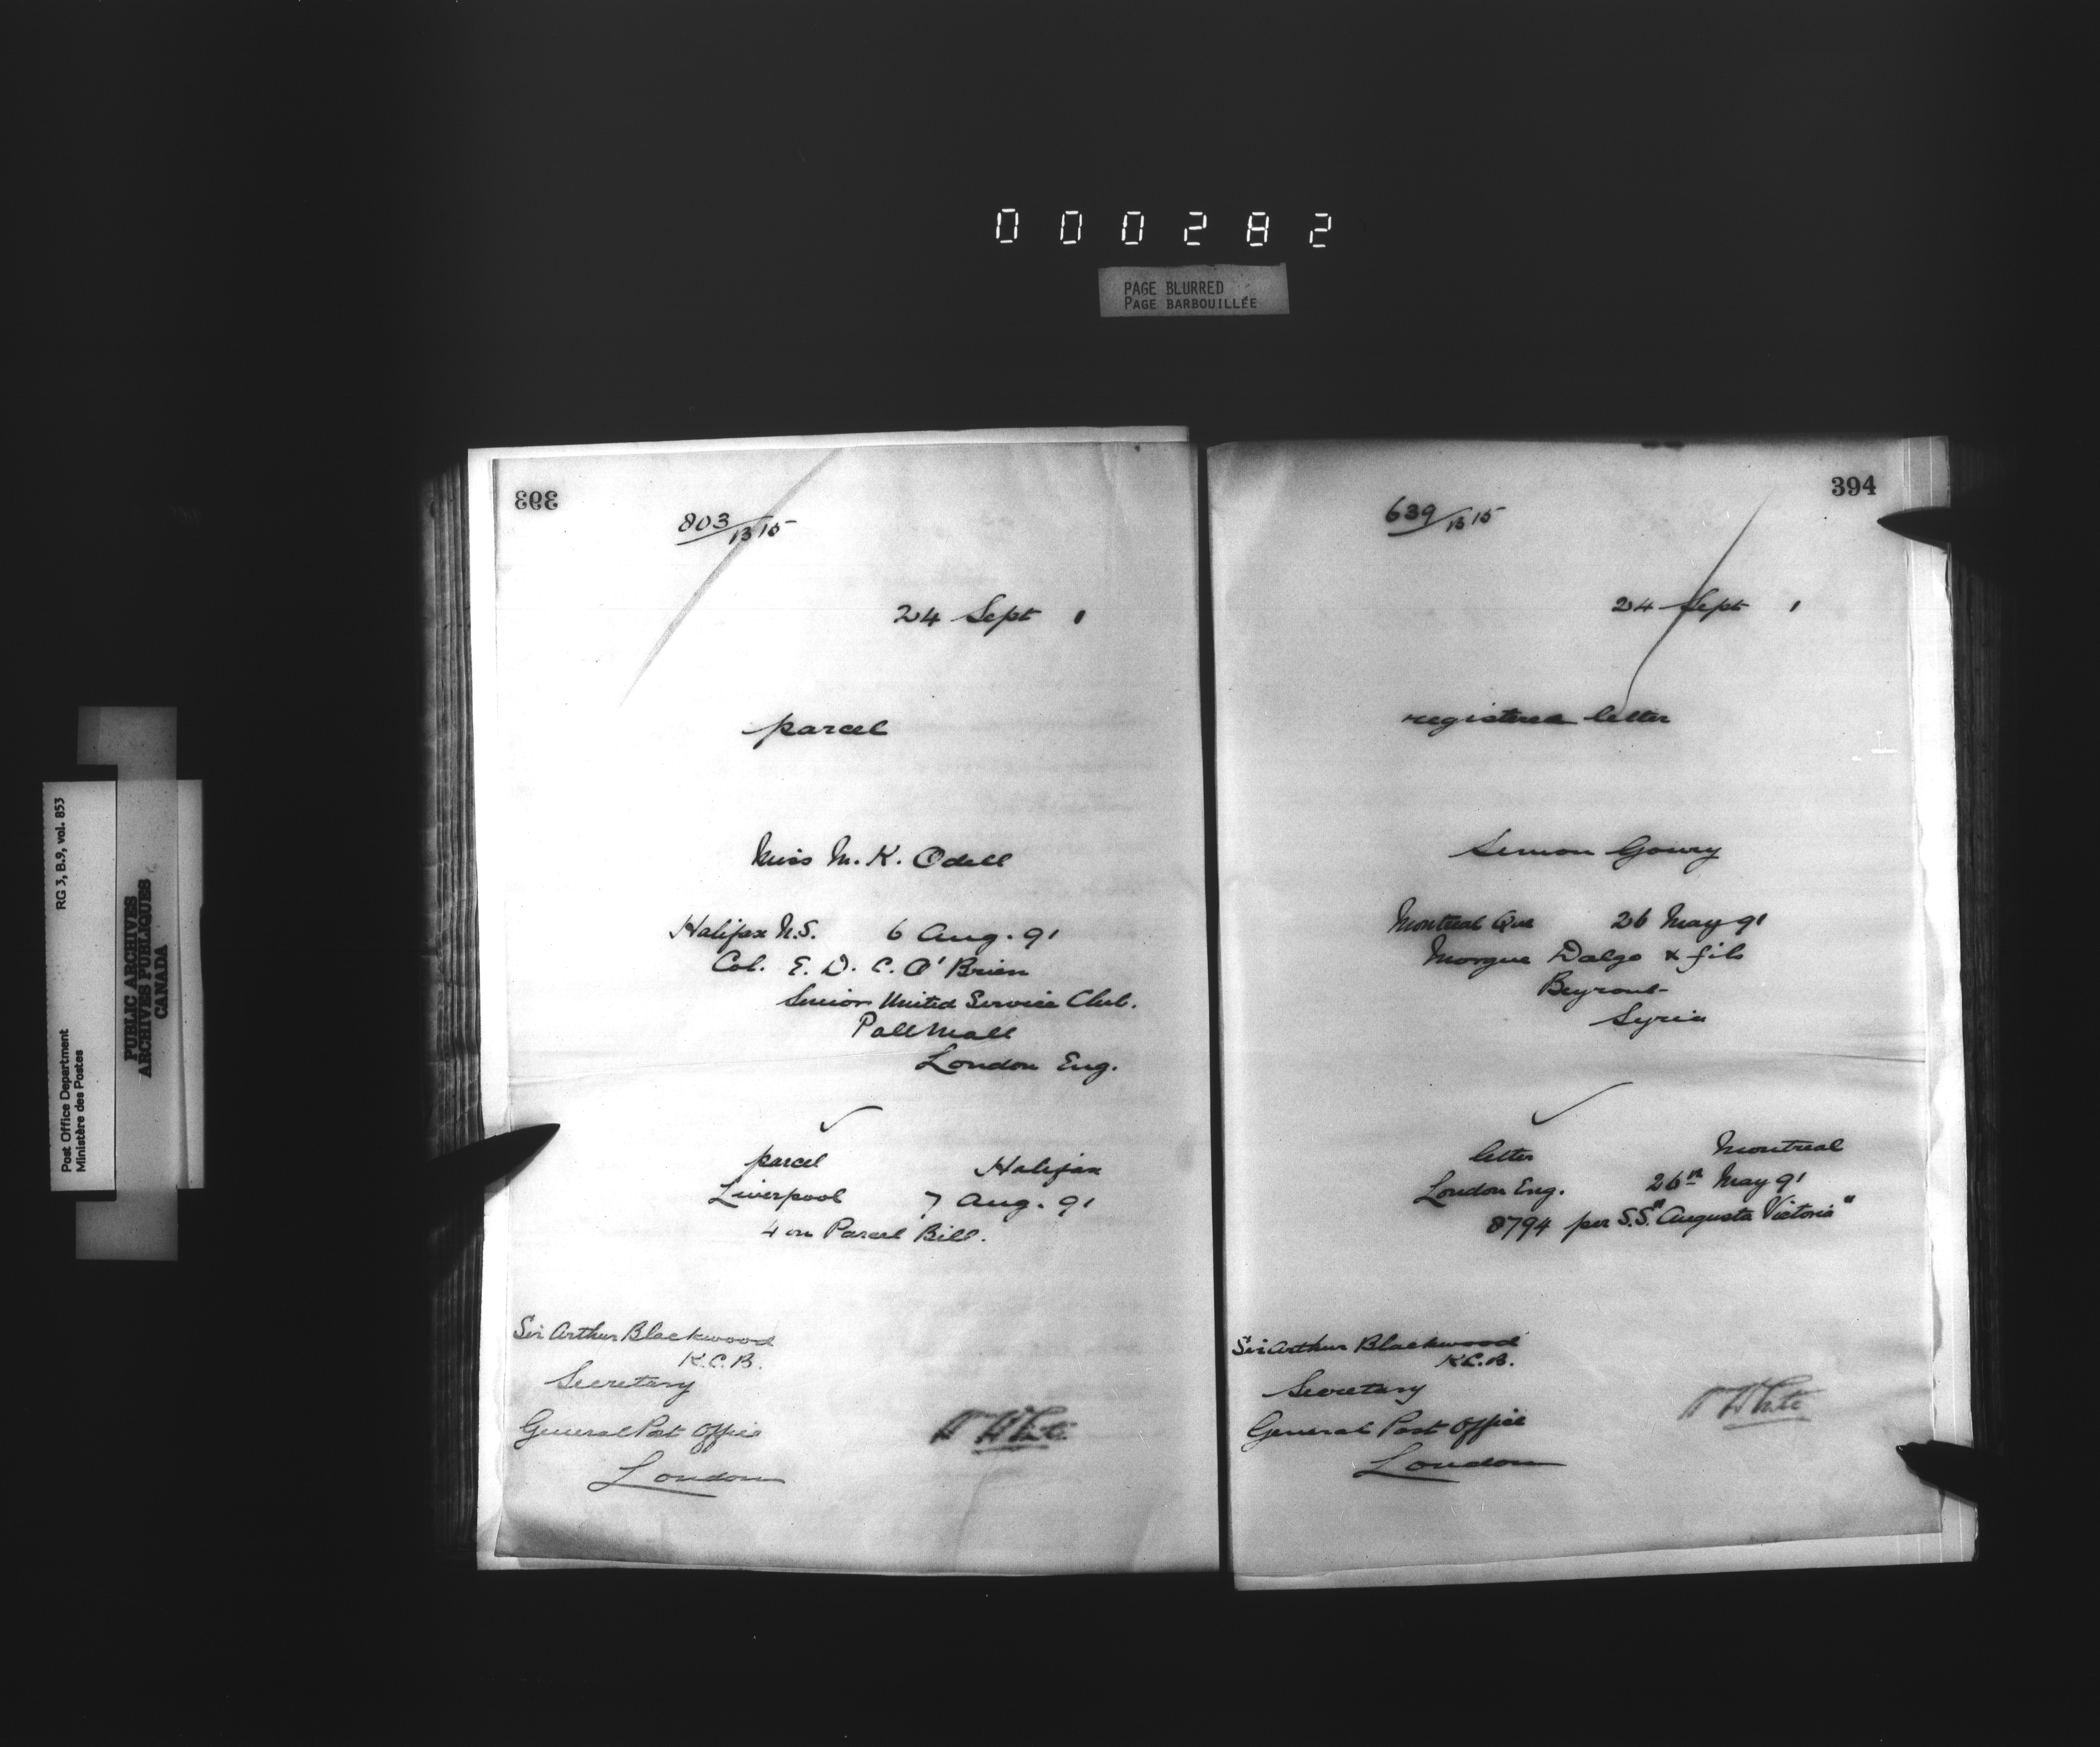 000282
PAGE BLURRED
PAGE BARBOUILLÉE
RG 3, B.9, vol. 853
Post Office Department
Ministère des Postes
PUBLIC ARCHIVES
ARCHIVES PUBLIQUES
CANADA
393
803/1315
24 Sept 1
parcel
Miss M. K. Odell
Halifax N.S. 6 Aug. 91
Col. E. D. C. O'Brien
Senior United Service Club.
Pall Mall
London Eng.
parcel Halifax
Liverpool 7 Aug. 91
4 on Parcel Bill.
Sir Arthur Blackwood
K.C.B.
Secretary
General Post Office
London
W White
394
639/1315
24 Sept 1
registered letter
Simon Goury
Montreal Que 26 May 91
Morgue Dalgo & fils
Beyrout
Syria
letter Montreal
London Eng. 26th May 91
8794 per S.S. "Augusta Victoria"
Sir Arthur Blackwood
K.C.B.
Secretary
General Post Office
London
W White